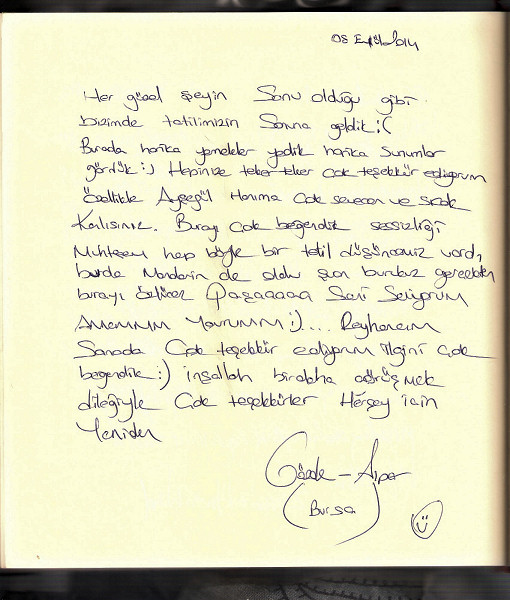 08 Eylül 2014
Her güzel şeyin Sonu olduğu gibi
bizimde tatilimizin Sonuna geldik :(
Burada harika yemekler yedik harika Sunumlar
gördük :) Hepinize teker teker Cok teşekkür ediyorum
özellikle Ayşegül Hanıma Cok sevecen ve sıcak
Kalısınız. Burayı Cok beğendik sessizliği
Muhteşem hep böyle bir tatil düşüncemiz vardı,
burda Mandarin de oldu şuan burdayız gerçekten
burayı özlicez Paşaaaaa Seni Seviyorum
Annemmm Yavrummm :)... Reyhancım
Sanada Cok teşekkür ediyorum ilgini çok
beğendik :) inşallah birdaha görüşmek
dileğiyle Cok teşekkürler Herşey için
Yeniden
Gözde - Alper
(Bursa)